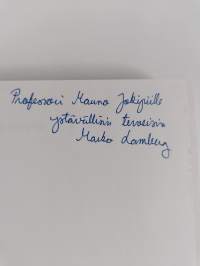 Professori Mauno Jokipiille
ystävällisin terveisin
Marko Lamberg